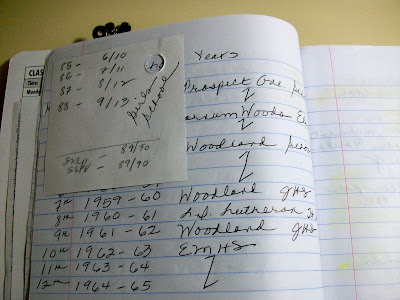 CLAS
Time:
Monday
85 - 6/10
86 - 7/11
87 - 8/12
88 - 9/13
Girls
School
Sep - 89/90
Sept - 89/90
Years
Prospect Ave
Woods
Woodland
7th 1959 - 60 Woodland JHS
1960 - 61 Lutheran
9th 1961 - 62 Woodland JHS
10th 1962 - 63 EMHS
11th 1963 - 64
12th 1964 - 65